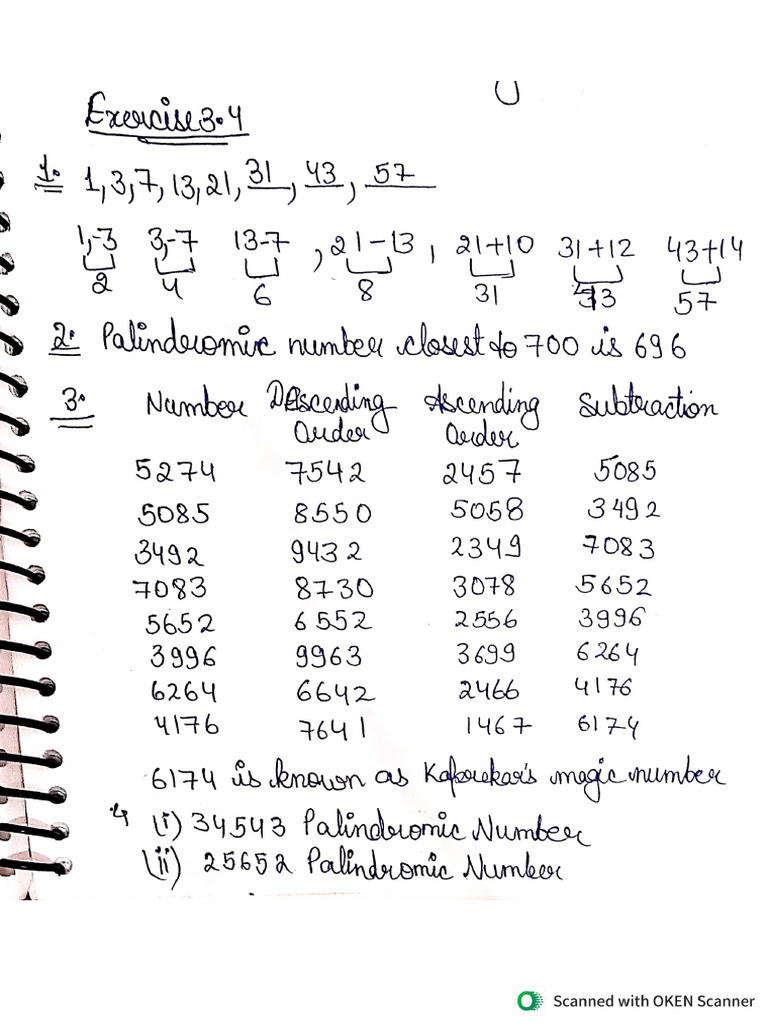 Exercise 3.4
1. 1, 3, 7, 13, 21, 31, 43, 57
1,-3 3,-7 13-7 , 21-13, 21+10 31+12 43+14
2 4 6 8 31 43 57
2. Palindromic number closest to 700 is 696
3. Number Descending Order Ascending Order Subtraction
5274 7542 2457 5085
5085 8550 5058 3492
3492 9432 2349 7083
7083 8730 3078 5652
5652 6552 2556 3996
3996 9963 3699 6264
6264 6642 2466 4176
4176 7641 1467 6174
6174 is known as Kaprekar's magic number
4 (i) 34543 Palindromic Number
(ii) 25652 Palindromic Number
Scanned with OKEN Scanner